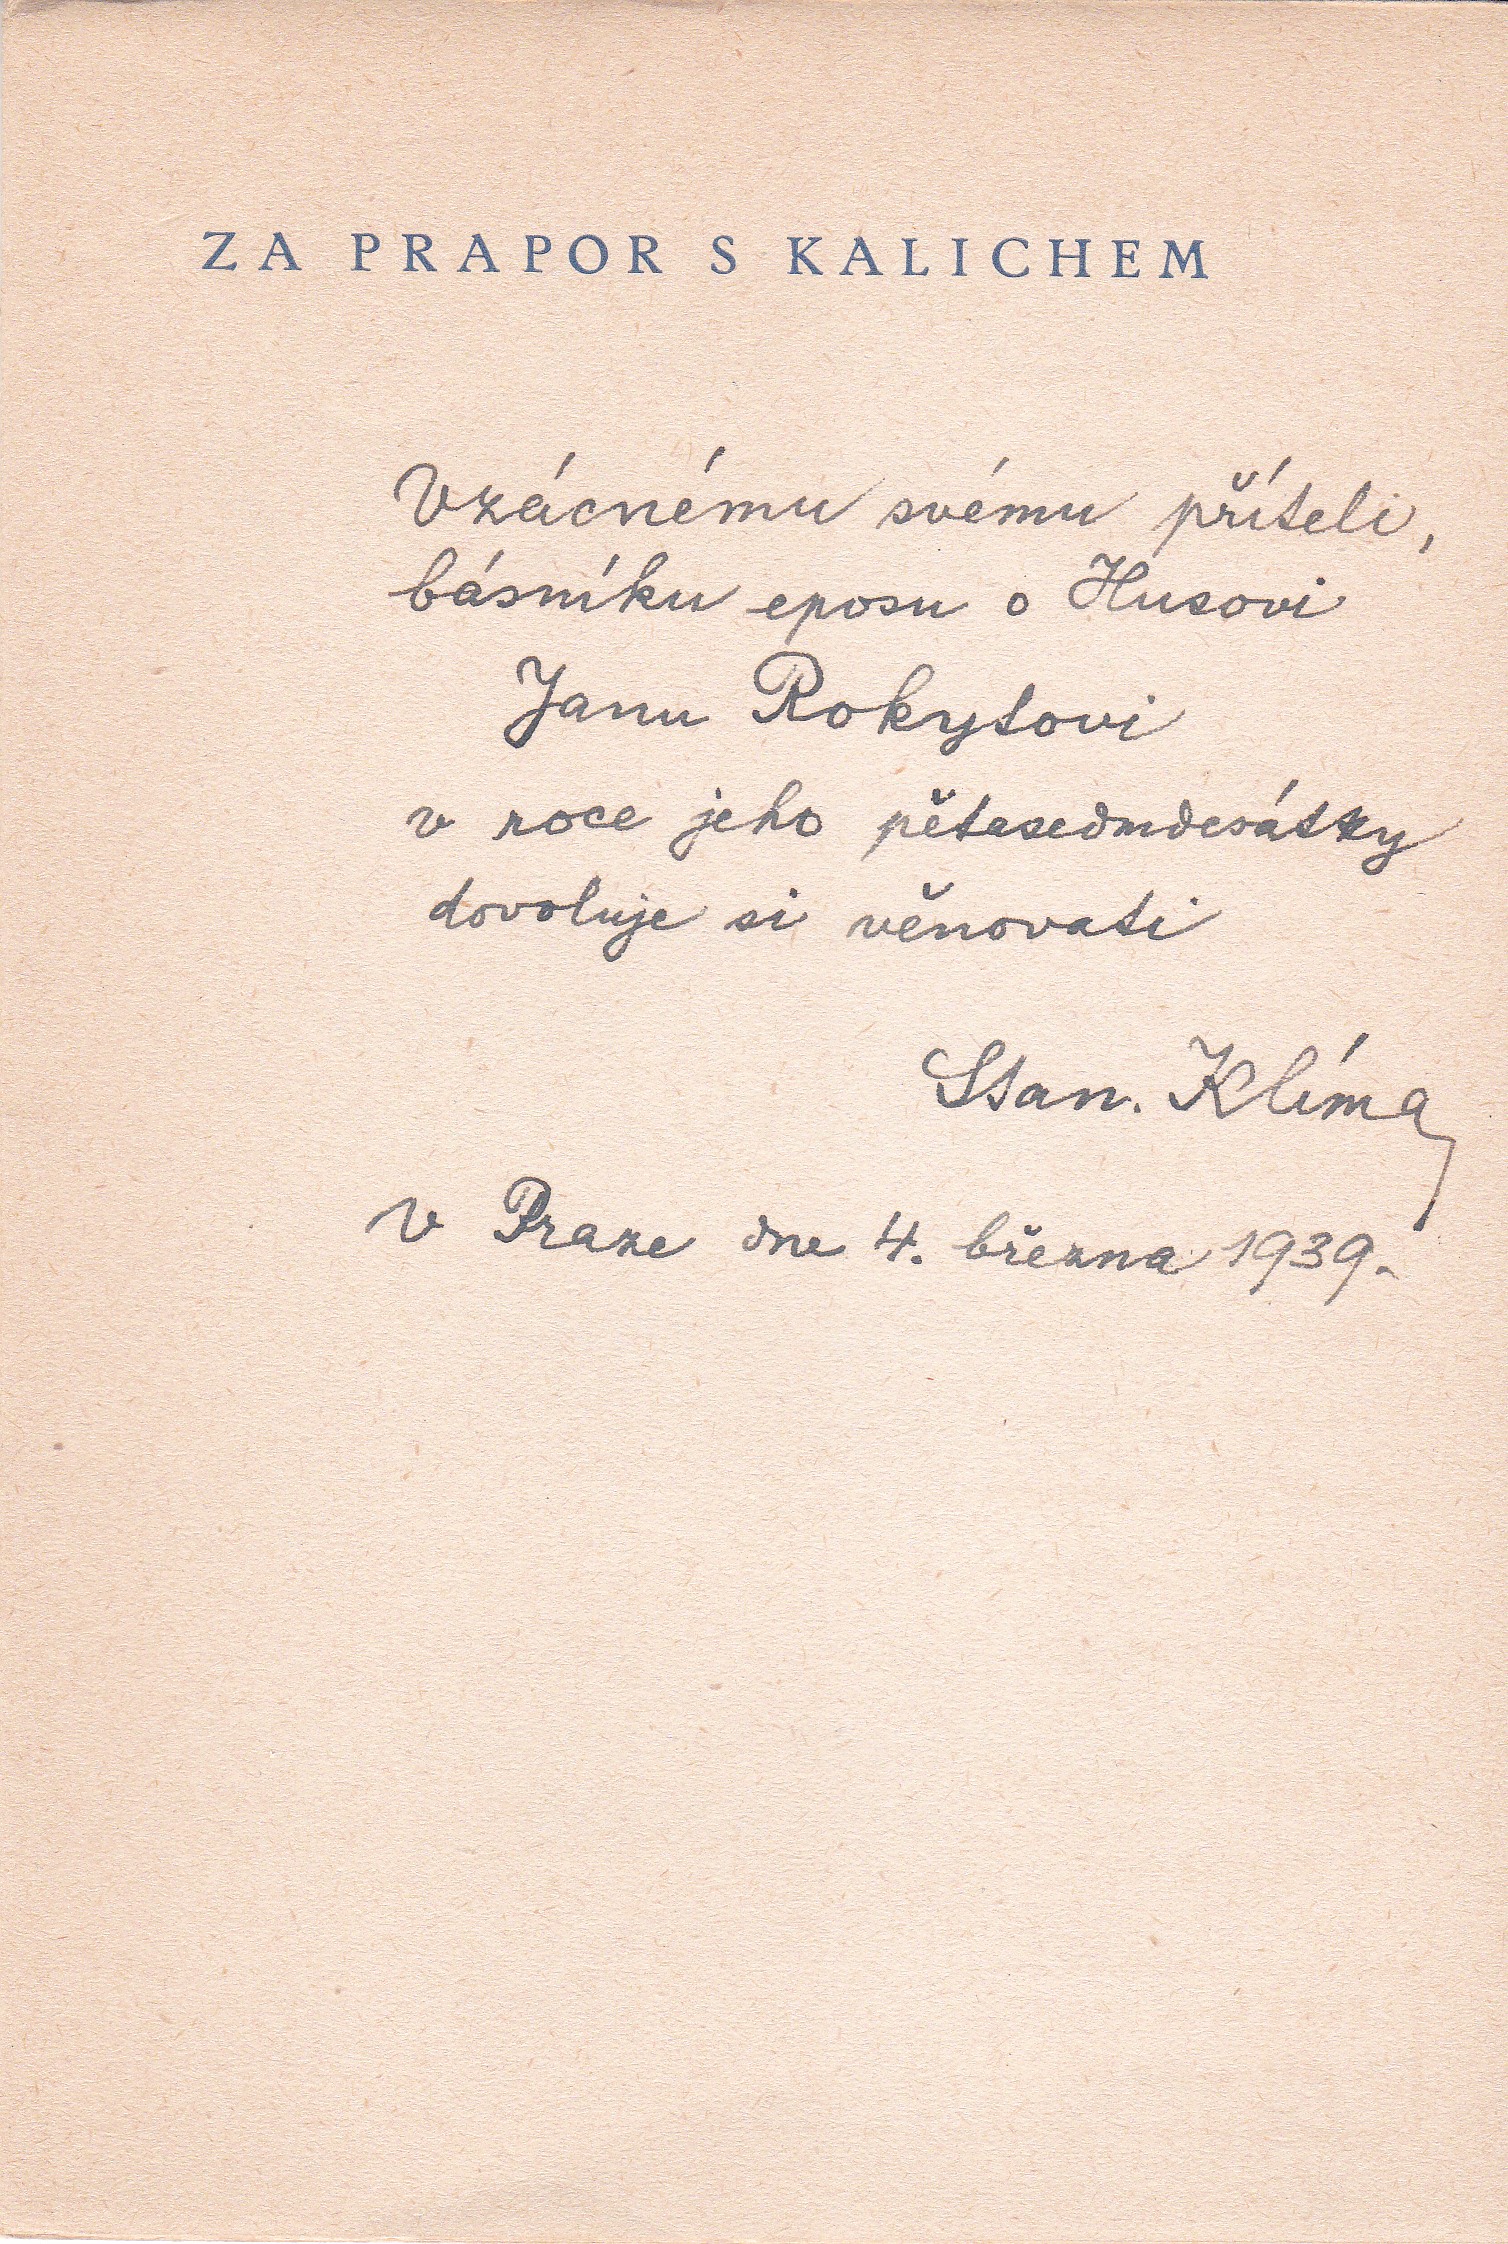 ZA PRAPOR S KALICHEM
Vzácnému svému příteli,
básníku eposu o Husovi
Janu Rokytovi
v roce jeho pětasedmdesátky
dovoluje si věnovati
Stan. Klíma
V Praze dne 4. března 1939.